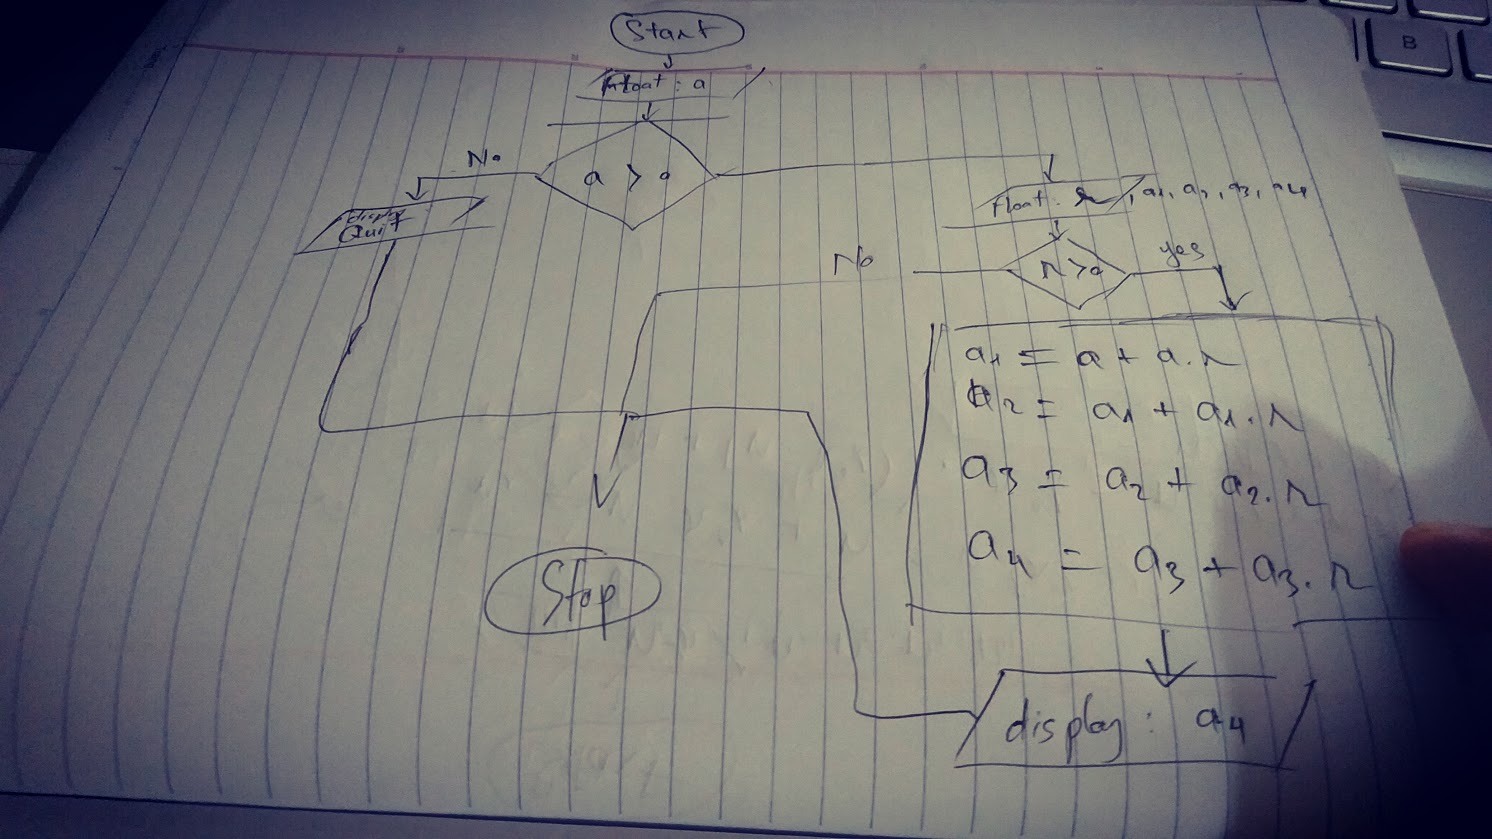 Start
Float : a
No
a > 0
display
Quit
Float : r , a1, a2, a3, a4
No
r > 0
yes
a1 = a + a.r
a2 = a1 + a1.r
a3 = a2 + a2.r
a4 = a3 + a3.r
Stop
display : a4
B